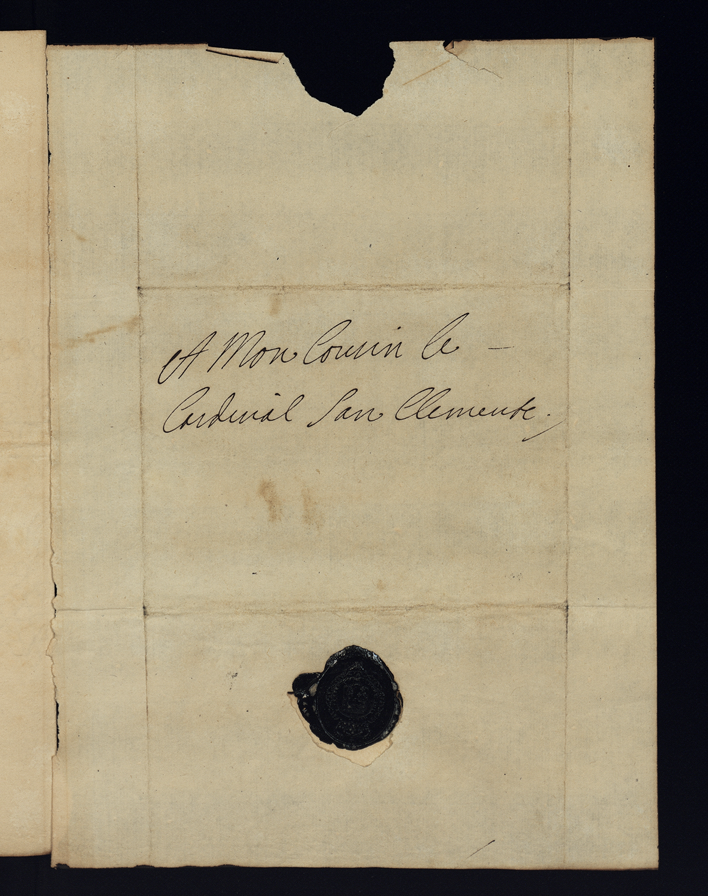 A Mon Cousin le –
Cardinal San Clemente.